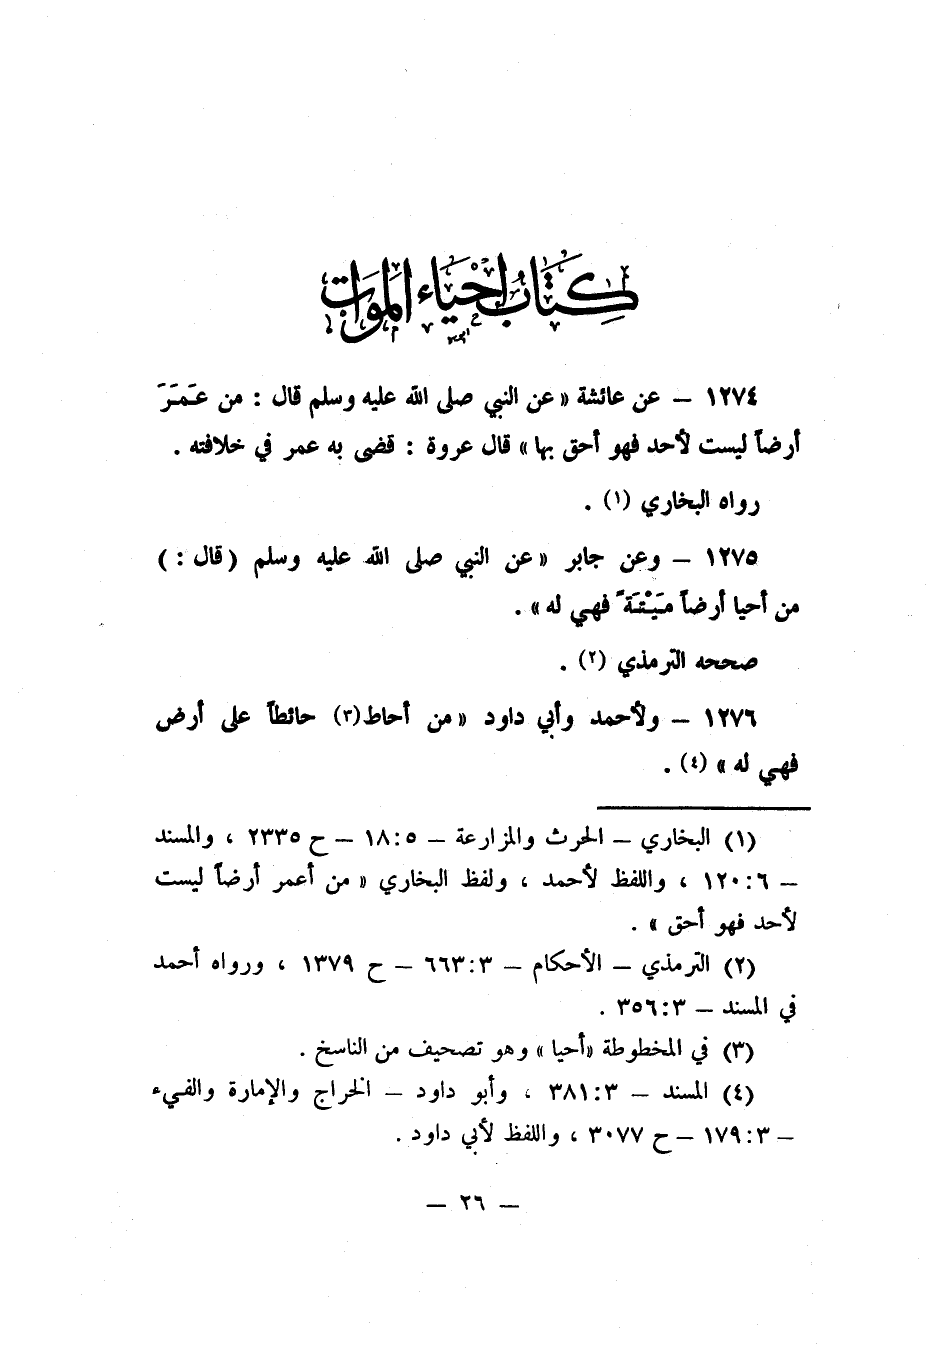 كتاب إحياء الموات
١٢٧٤ – عن عائشة « عن النبي صلى الله عليه وسلم قال : من عَمَرَ
أرضاً ليست لأحد فهو أحق بها » قال عروة : قضى به عمر في خلافته .
رواه البخاري (١) .
١٢٧٥ – وعن جابر « عن النبي صلى الله عليه وسلم ( قال : )
من أحيا أرضاً مَيْتَةً فهي له » .
صححه الترمذي (٢) .
١٢٧٦ – ولأحمد وأبي داود « من أحاط(٣) حائطاً على أرض
فهي له » (٤) .
(١) البخاري – الحرث والمزارعة – ١٨:٥ – ح ٢٣٣٥ ، والمسند
– ١٢٠:٦ ، واللفظ لأحمد ، ولفظ البخاري « من أعمر أرضاً ليست
لأحد فهو أحق » .
(٢) الترمذي – الأحكام – ٦٦٣:٣ – ح ١٣٧٩ ، ورواه أحمد
في المسند – ٣٥٦:٣ .
(٣) في المخطوطة «أحيا » وهو تصحيف من الناسخ .
(٤) المسند – ٣٨١:٣ ، وأبو داود – الخراج والإمارة والفيء
– ١٧٩:٣ – ح ٣٠٧٧ ، واللفظ لأبي داود .
– ٢٦ –